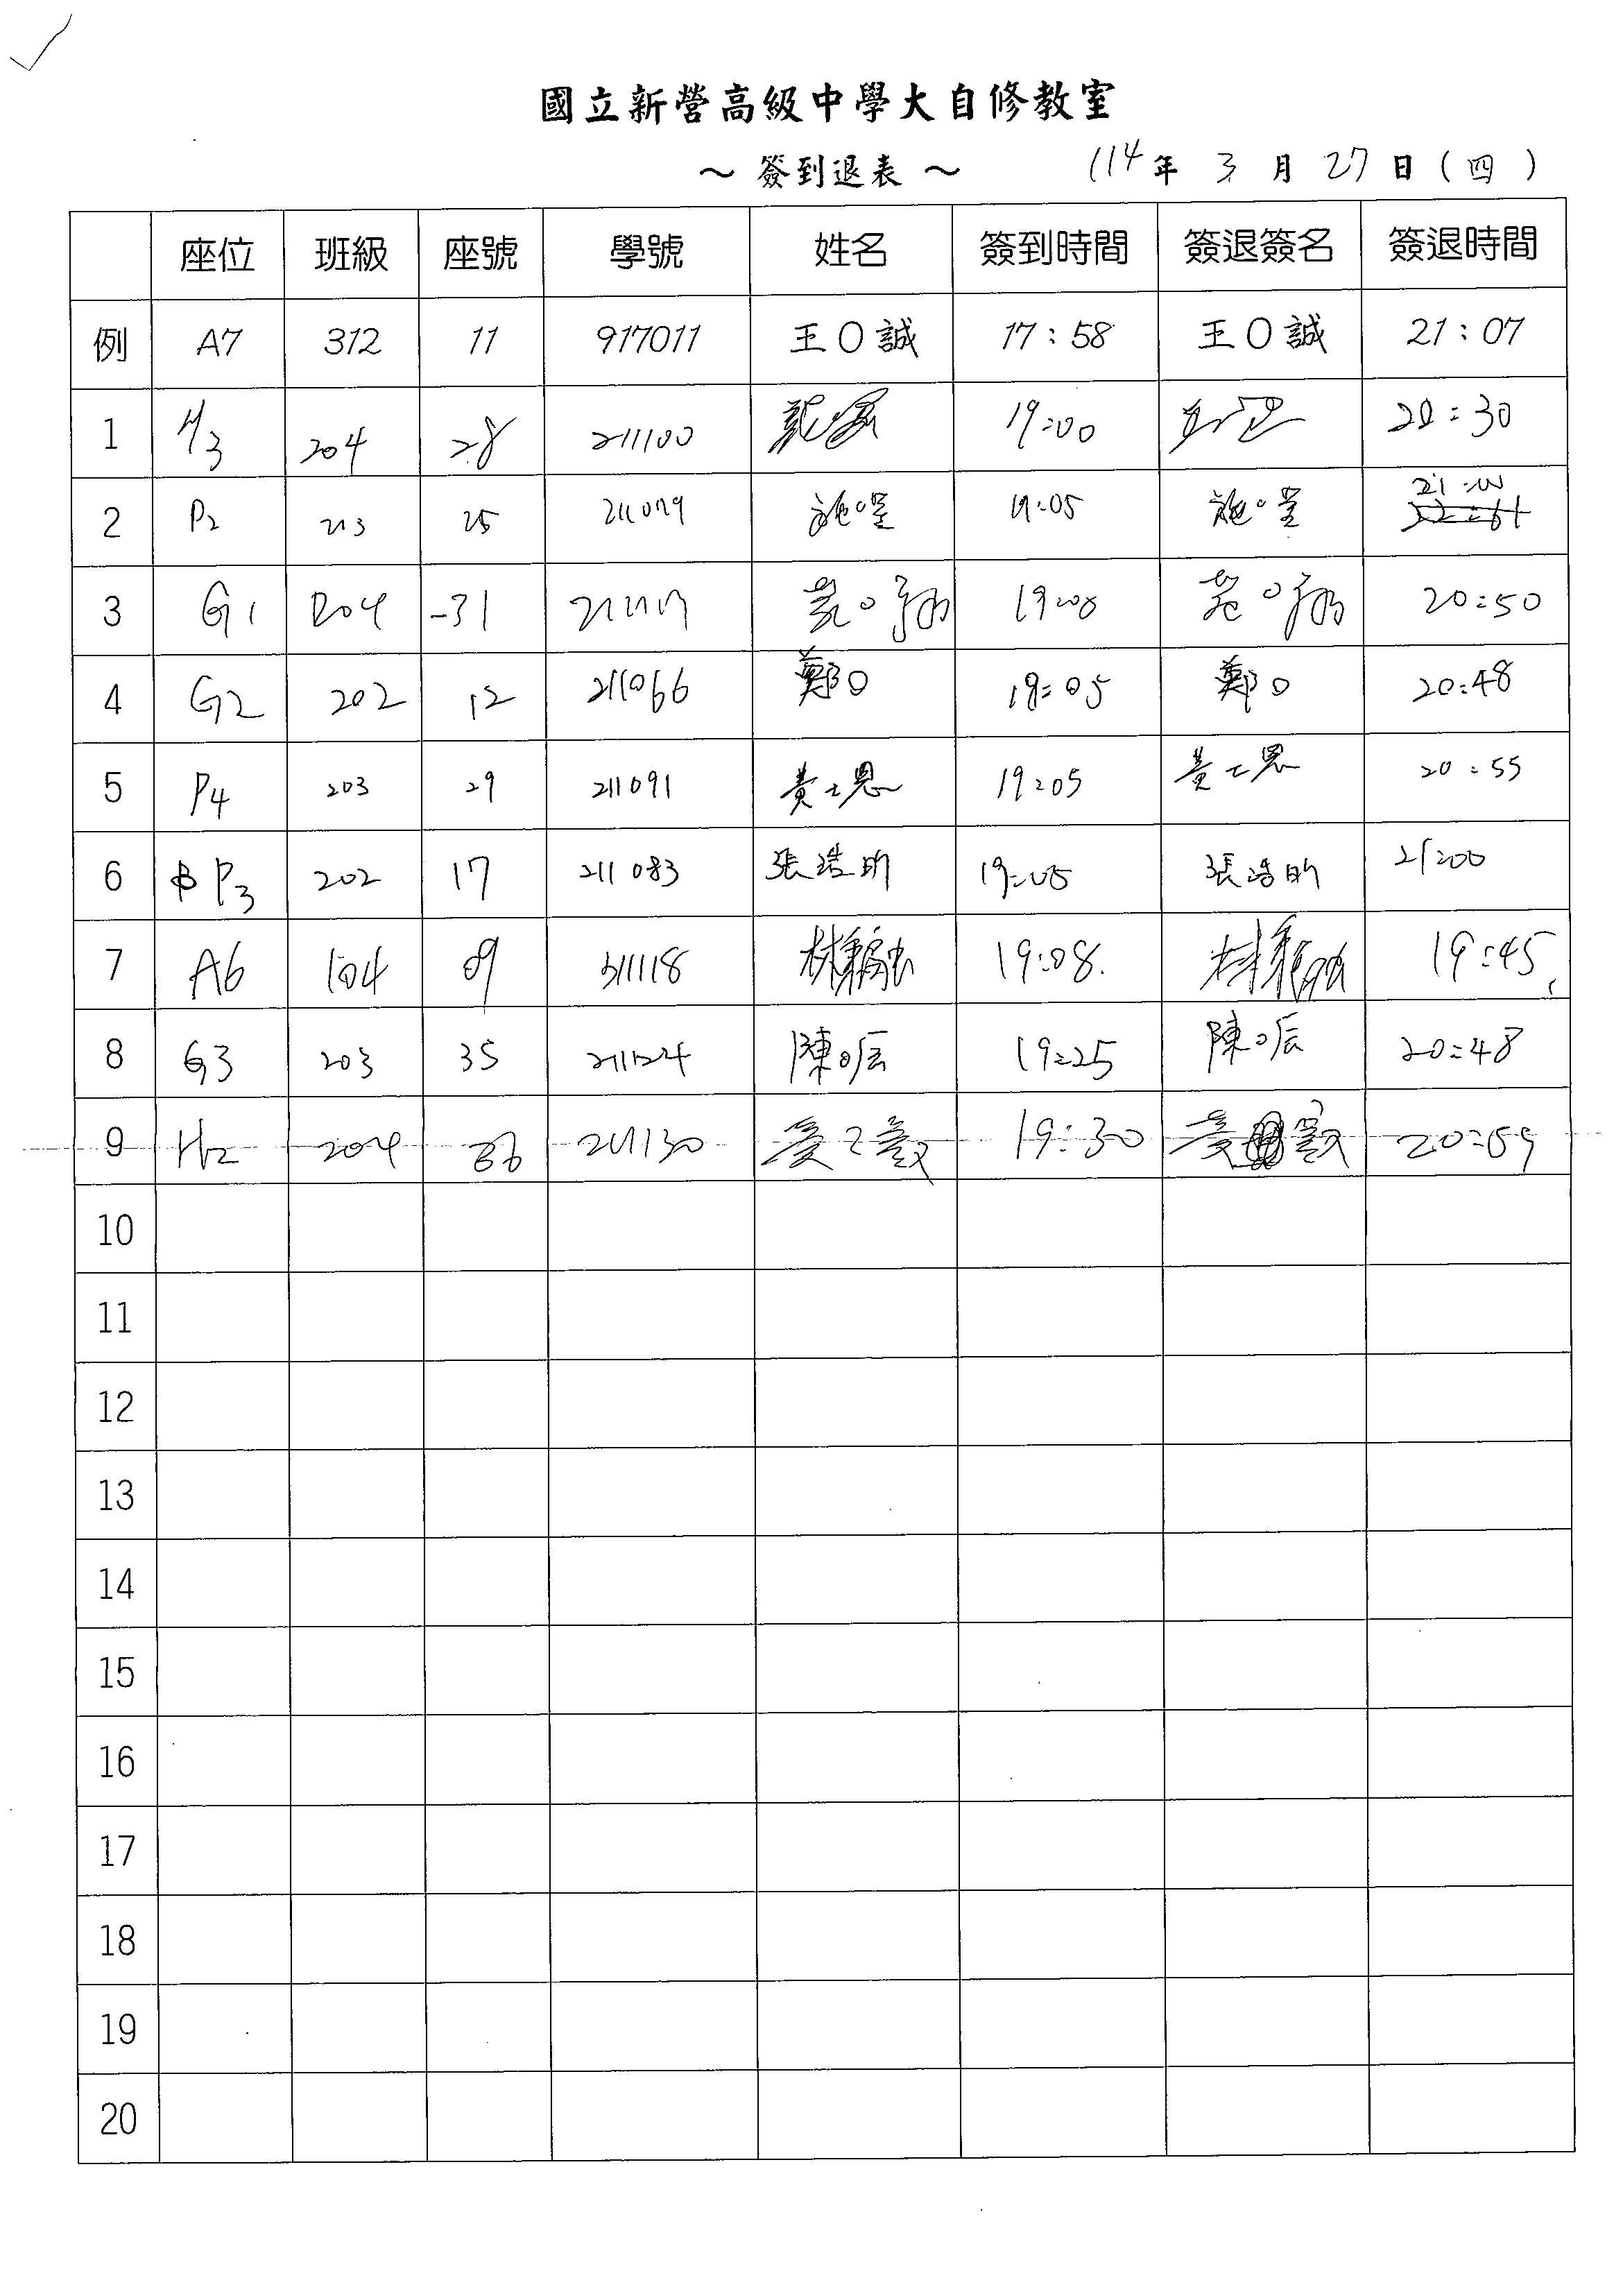 國立新營高級中學大自修教室
～ 簽到退表 ～ 114 年 3 月 27 日 ( 四 )
座位 班級 座號 學號 姓名 簽到時間 簽退簽名 簽退時間
例 A7 312 11 917011 王O誠 17:58 王O誠 21:07
1 H3 204 28 211100 19:00 20:30
2 P2 203 25 211079 施O呈 19:05 施O呈 21:00
3 G1 204 31 19:08 20:50
4 G2 202 12 211066 鄭O 19:05 鄭O 20:48
5 P4 203 29 211091 黃士恩 19:05 黃士恩 20:55
6 P3 202 17 211083 張浩昀 19:05 張浩昀 21:00
7 A6 104 09 311118 林 19:08 林 19:45
8 G3 203 35 211124 陳O辰 19:25 陳O辰 20:48
9 H2 204 36 211130 19:30 20:59
10
11
12
13
14
15
16
17
18
19
20